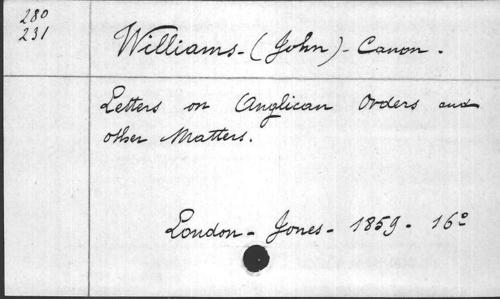 280
231
Williams - (John) - Canon.
Letters on Anglican Orders and
other Matters.
London - Jones - 1859 - 16º